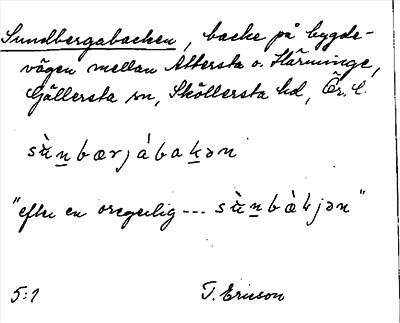 Sundbergabacken, backe på bygde-
vägen mellan Attersta o. Härminge,
Gällersta sn, Sköllersta hd, Ör. l.
sừṉbærjábaḵən
"efter en oregerlig --- sừṉbæ̀kjən"
5:1 T. Ericson